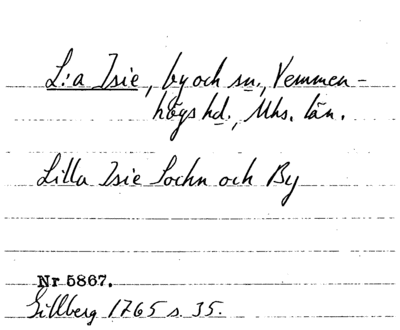 L:a Isie, by och sn., Vemmen-
högs hd., Mhs. län.
Lilla Isie Sochn och By
Nr 5867.
Gillberg 1765 s. 35.